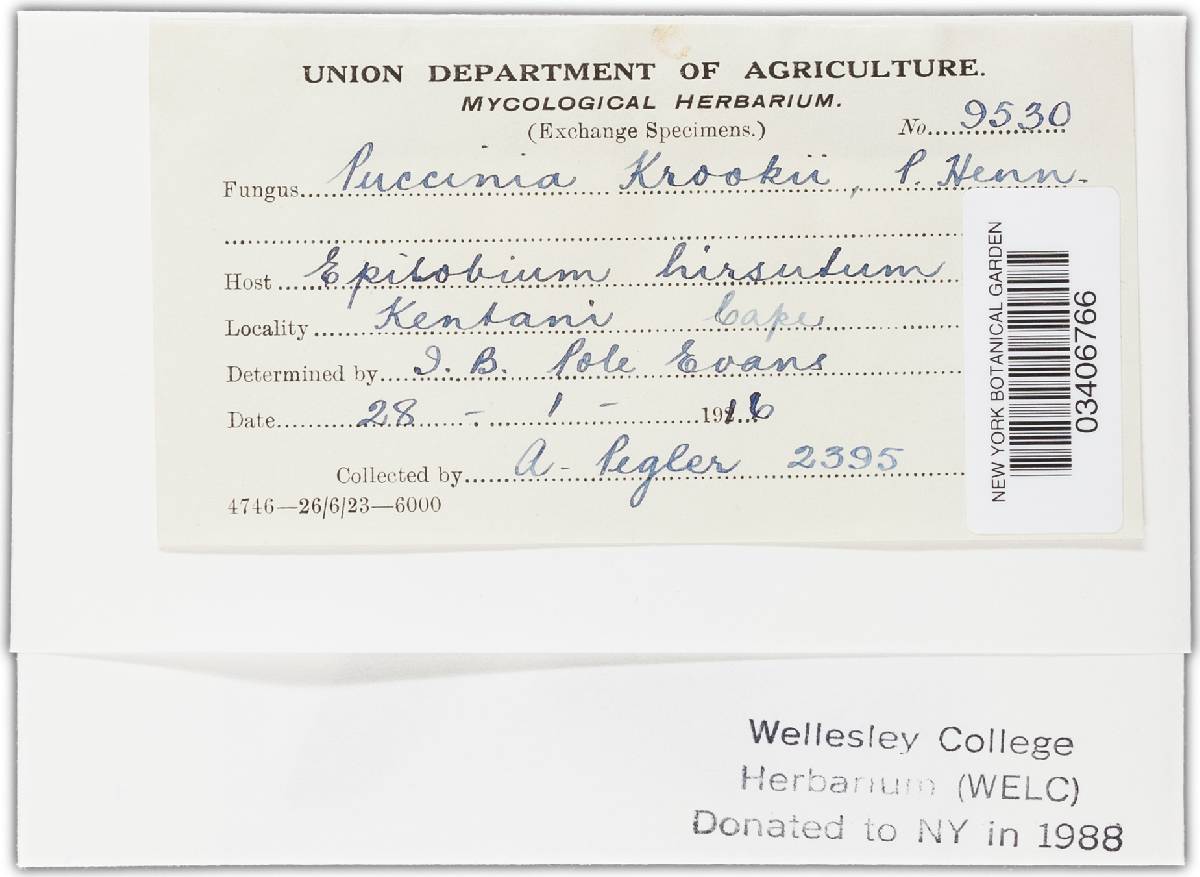 UNION DEPARTMENT OF AGRICULTURE.
MYCOLOGICAL HERBARIUM.
(Exchange Specimens.)
No. 9530
Fungus Puccinia Krookii, P. Henn.
Host Epilobium hirsutum
Locality Kentani Cape
Determined by I. B. Pole Evans
Date 28 - 1 - 1916
Collected by A. Pegler 2395
4746—26/6/23—6000
NEW YORK BOTANICAL GARDEN
03406766
Wellesley College
Herbarium (WELC)
Donated to NY in 1988